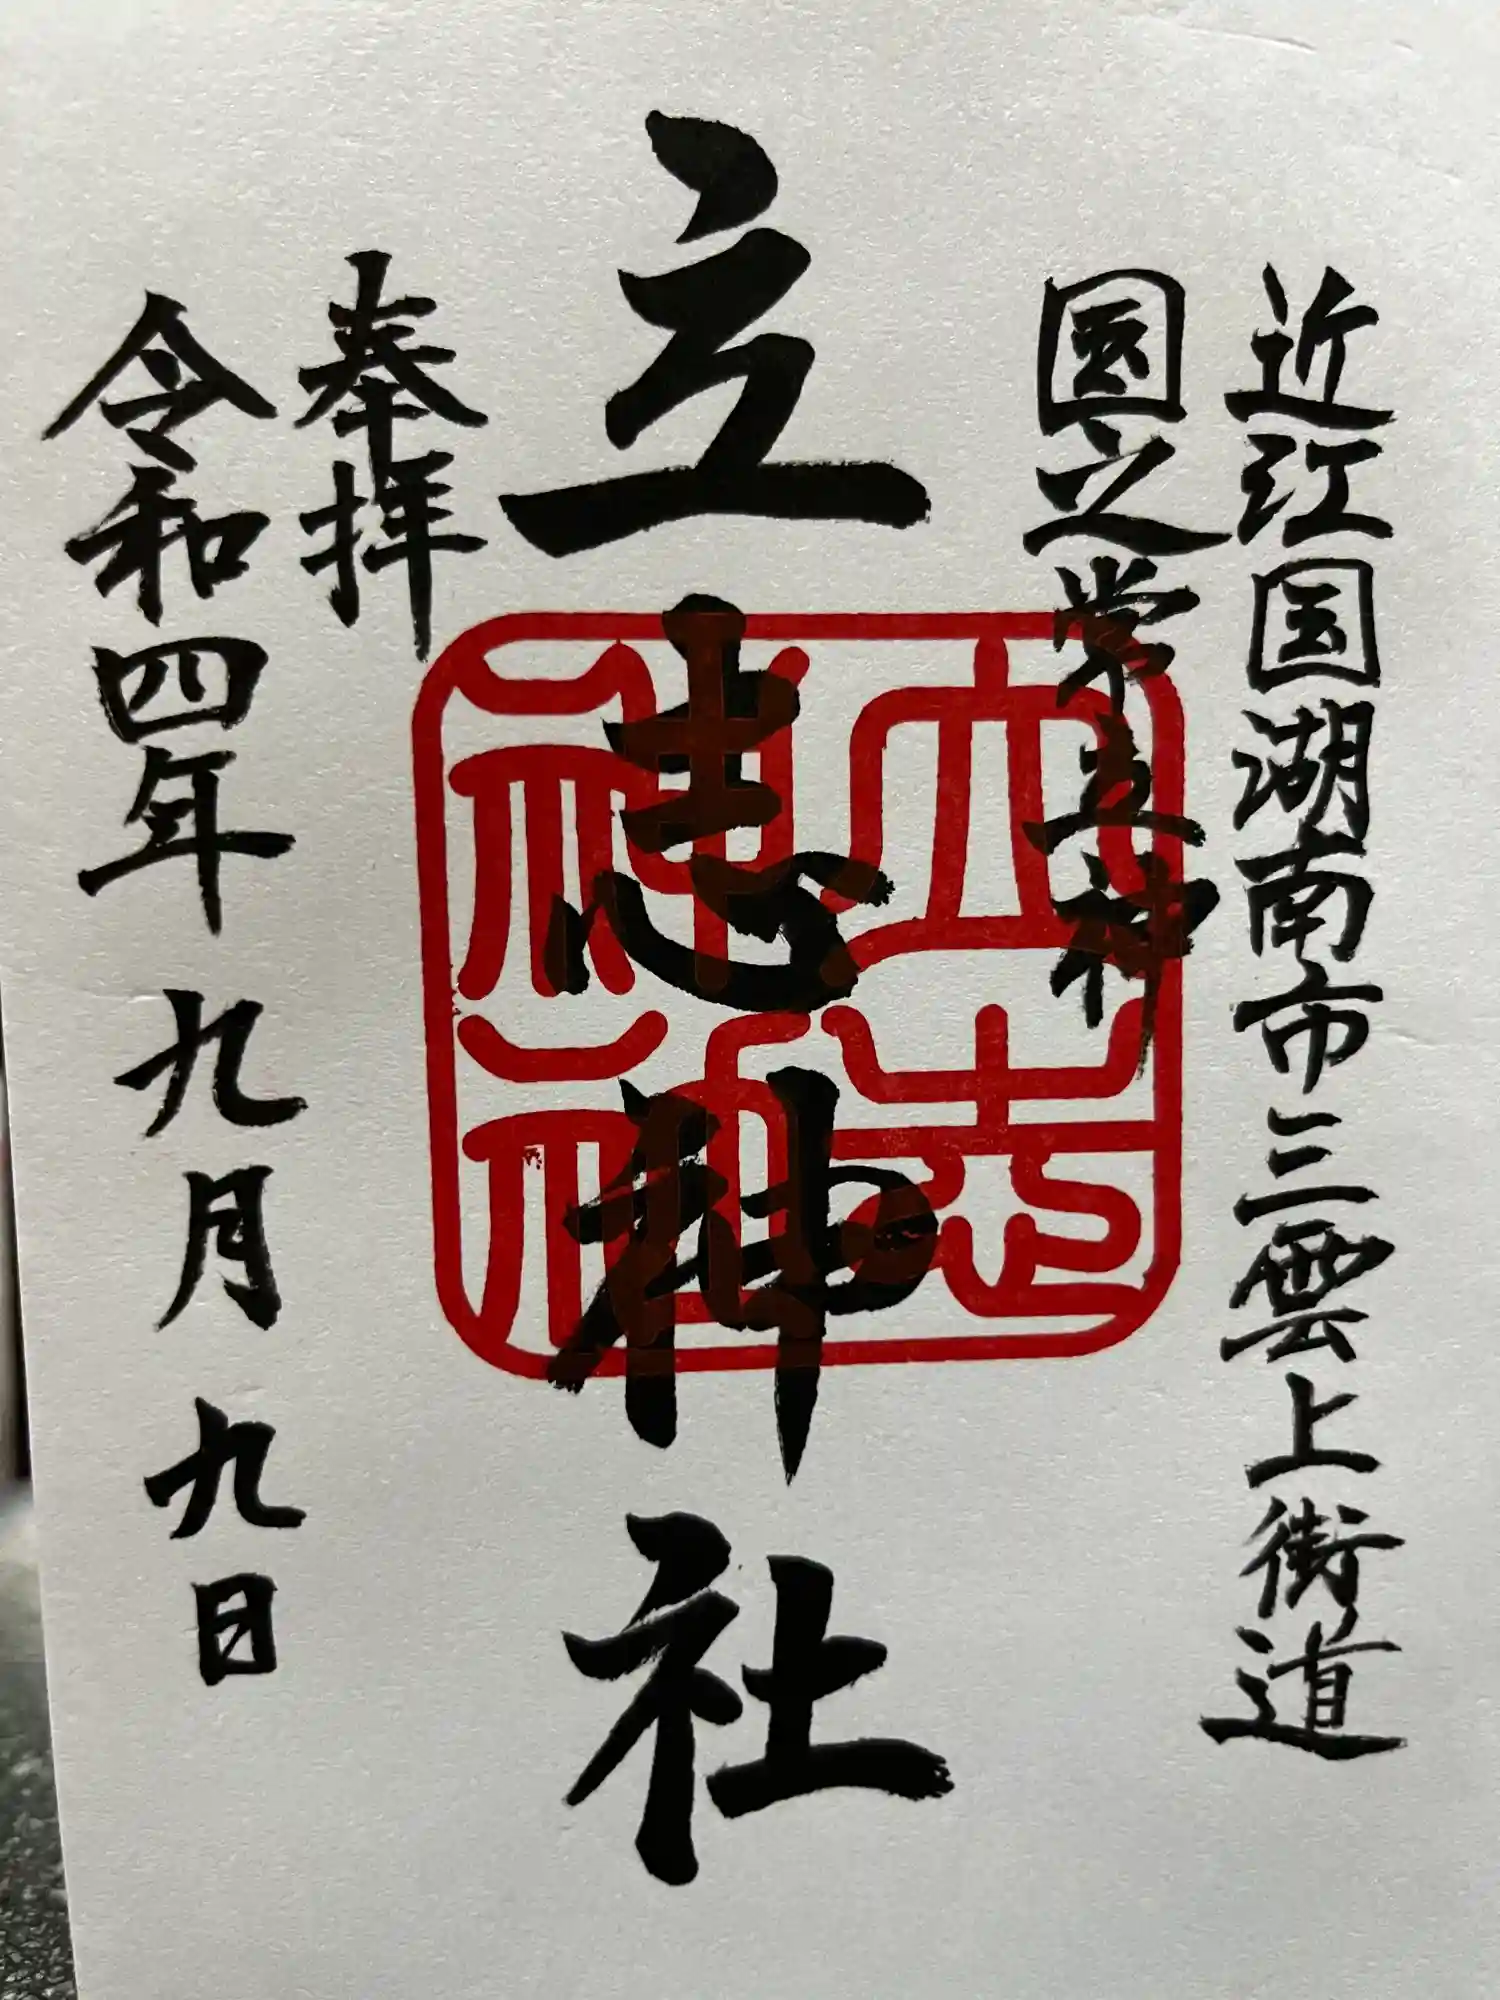 近江国湖南市三雲上街道
国之常立神
立志神社
立志
神社
奉拝
令和四年 九月 九日